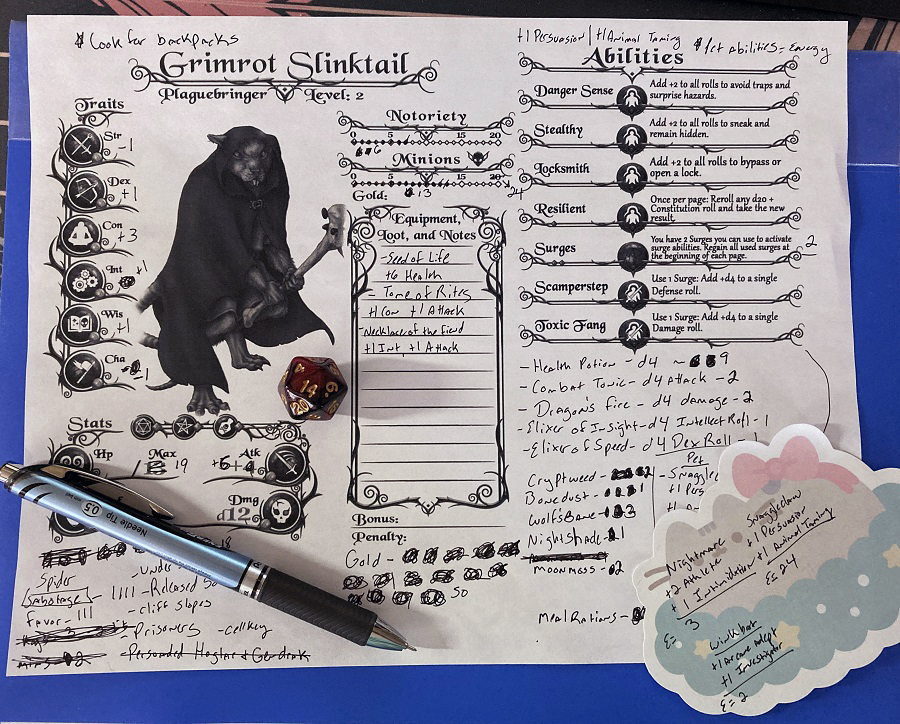 Look for backpacks
+1 Persuasion | +1 Animal Taming
Act abilities = Energy
Grimrot Slinktail
Plaguebringer Level: 2
Traits
Str
-1
Dex
+1
Con
+3
Int
+1
Wis
+1
Cha
-1
Stats
Hp
Max
19
Atk
+6
Dmg
d12
Notoriety
0 5 10 15 20
6
Minions
0 5 10 15 20
Gold:
13
24
Equipment,
Loot, and Notes
-Seed of Life
+6 Health
- Tome of Rites
+1 Con +1 Attack
-Necklace of the Fiend
+1 Int, +1 Attack
Bonus:
Penalty:
Gold -
50
Abilities
Danger Sense
Add +2 to all rolls to avoid traps and
surprise hazards.
Stealthy
Add +2 to all rolls to sneak and
remain hidden.
Locksmith
Add +2 to all rolls to bypass or
open a lock.
Resilient
Once per page: Reroll any d20 +
Constitution roll and take the new
result.
Surges
You have 2 Surges you can use to activate
surge abilities. Regain all used surges at
the beginning of each page.
2
Scamperstep
Use 1 Surge: Add +d4 to a single
Defense roll.
Toxic Fang
Use 1 Surge: Add +d4 to a single
Damage roll.
- Health Potion - d4 ~ 9
- Combat Tonic - d4 Attack - 2
- Dragon's fire - d4 damage - 2
-Elixer of Insight - d4 Intellect Roll - 1
-Elixer of Speed - d4 Dex Roll -
Pet
- Snaggle
+1 Pers
Cryptweed - 2
Bonedust - 1
Wolf's Bane - 3
Nightshade - 1
Moonmoss - 2
Meal Rations -
18
Spider
Sabotage
IIII - Released
Favor - III
- cliff slopes
Prisoners - cell key
Persuaded Hoglar & Gendrak
14
20
Needle Tip 0.5
Nightmare
+2 Athlete
+1 Intimidation
E= 3
Snaggleclaw
+1 Persuasion
+1 Animal Taming
E= 24
Winkbat
+1 Arcane Adept
+1 Investigator
E= 2